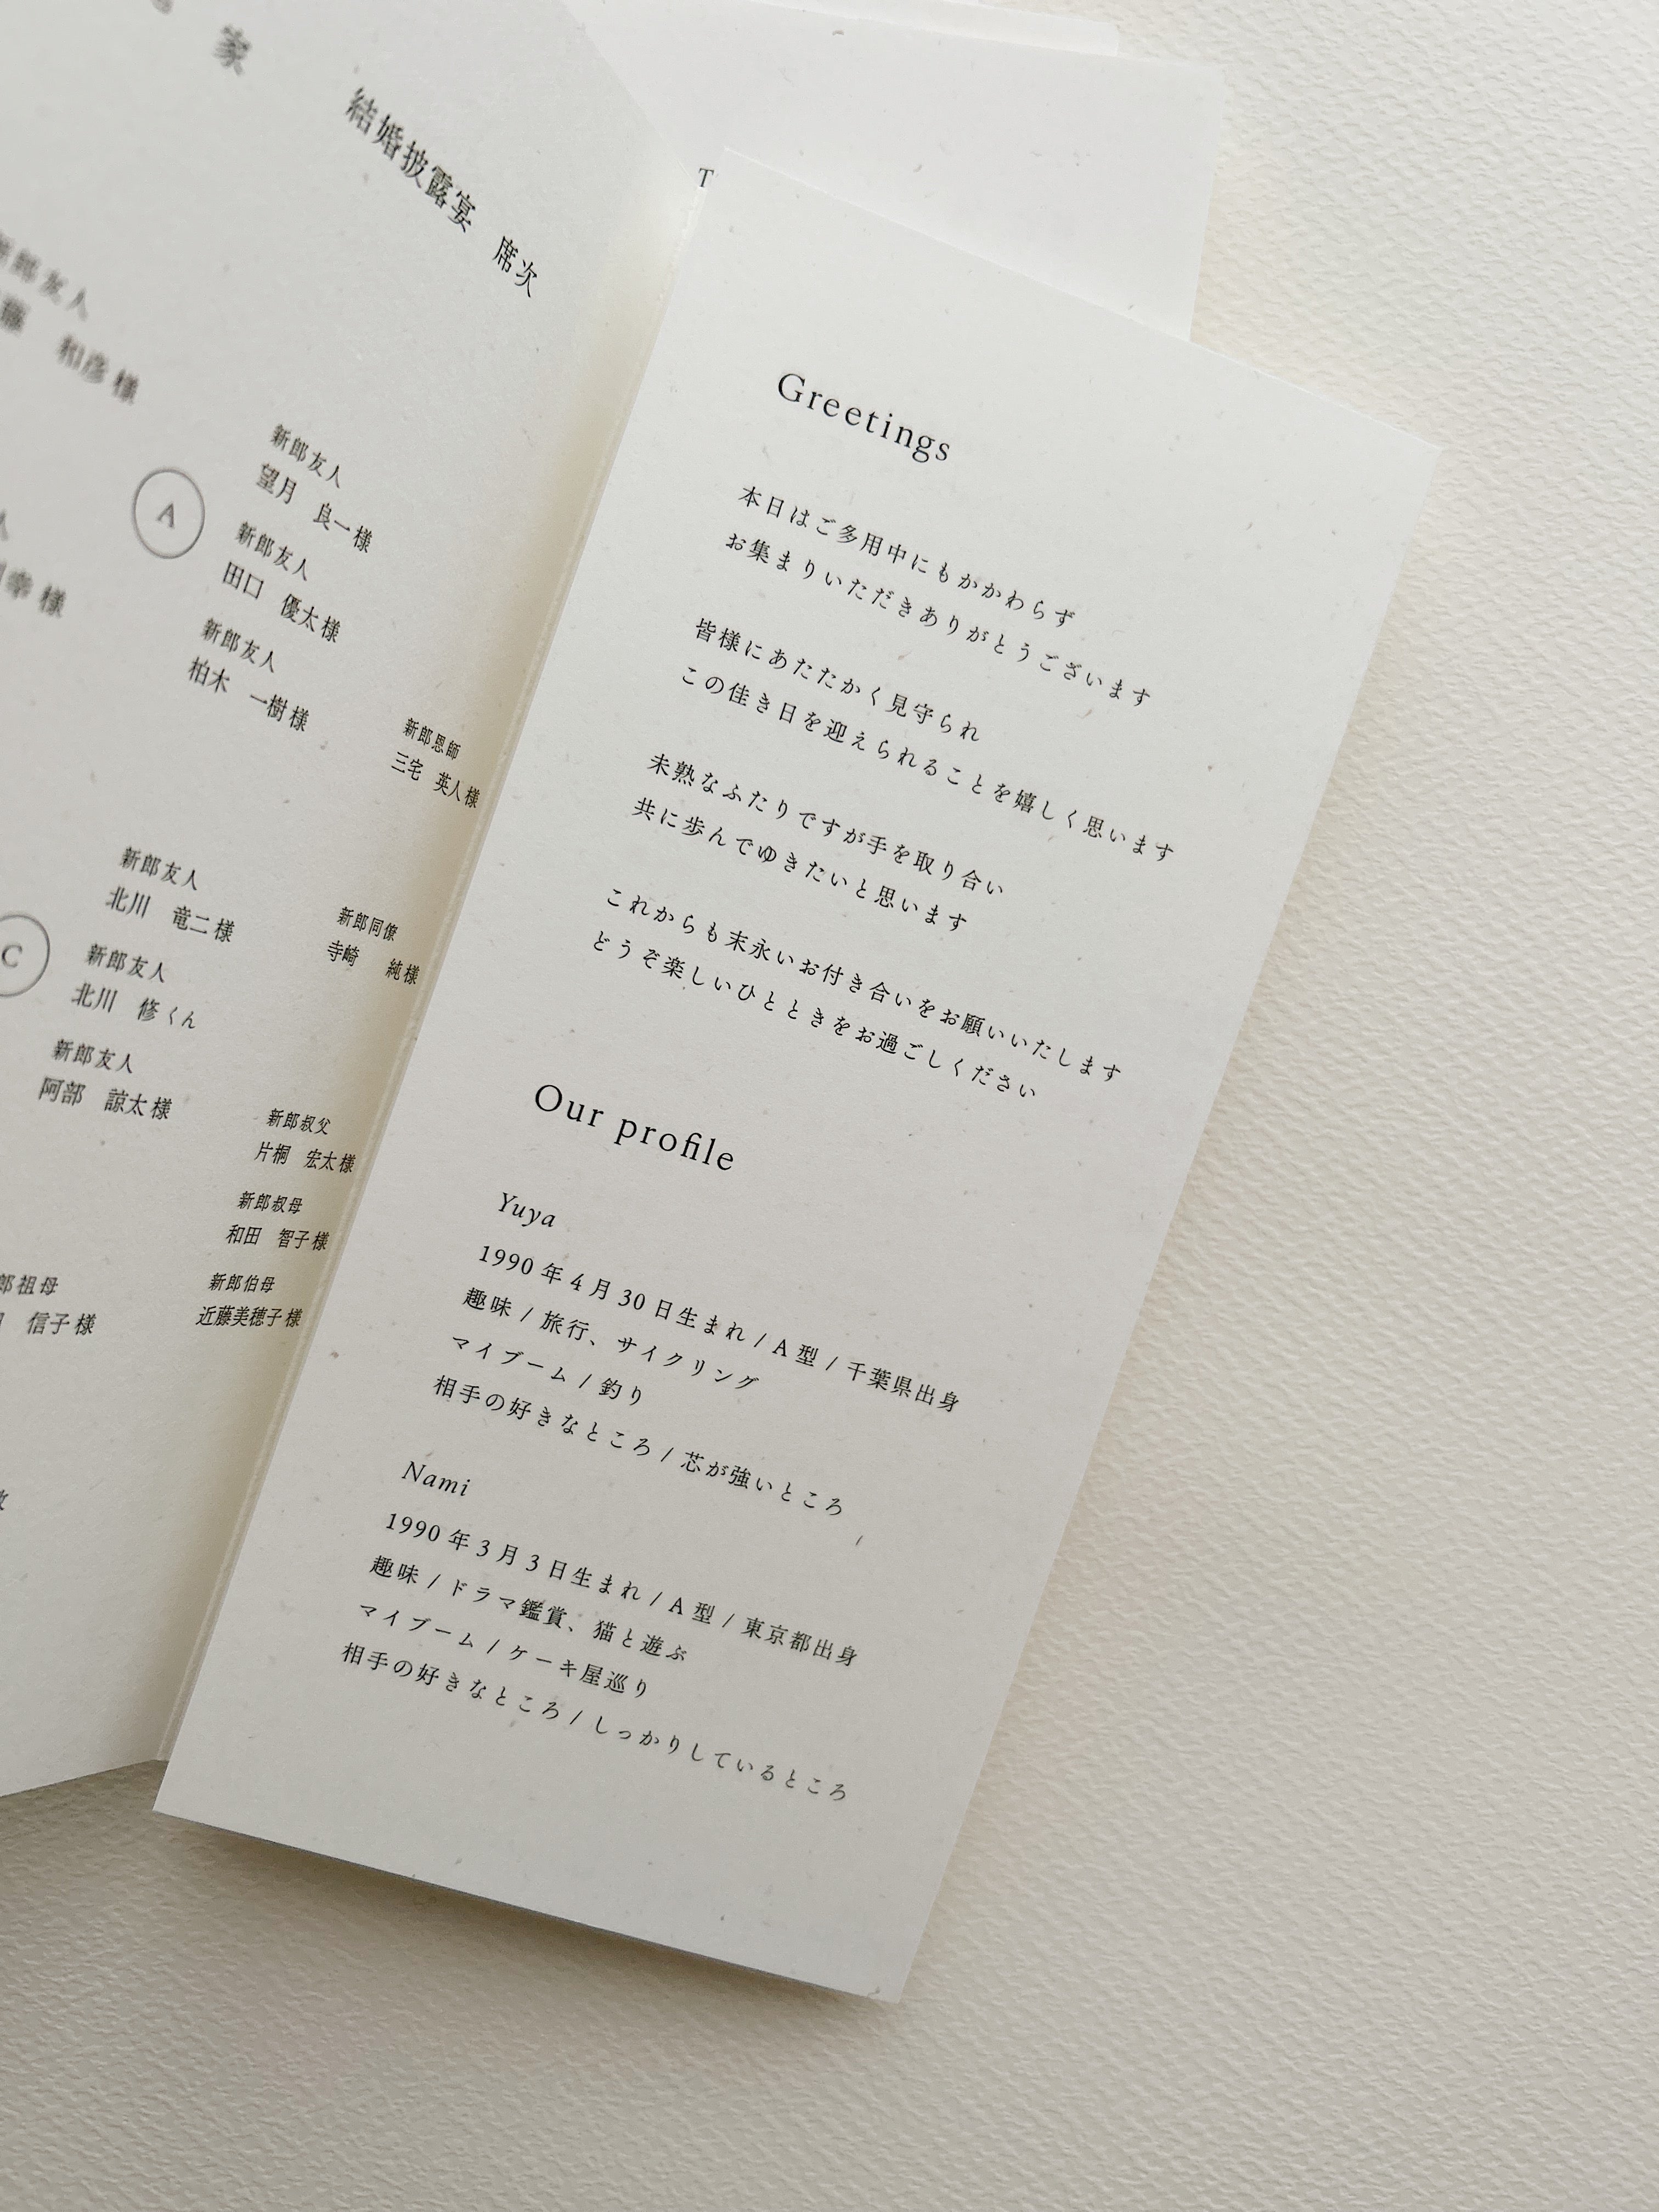 家
結婚披露宴 席次
新郎友人
和彦 様
様
A
新郎友人
望月 良一 様
新郎友人
田口 優太 様
新郎友人
柏木 一樹 様
新郎恩師
三宅 英人 様
C
新郎友人
北川 竜二 様
新郎友人
北川 修 くん
新郎友人
阿部 諒太 様
新郎同僚
寺崎 純 様
新郎叔父
片桐 宏太 様
新郎叔母
和田 智子 様
新郎伯母
近藤美穂子 様
郎祖母
信子 様
T
Greetings
本日はご多用中にもかかわらず
お集まりいただきありがとうございます
皆様にあたたかく見守られ
この佳き日を迎えられることを嬉しく思います
未熟なふたりですが手を取り合い
共に歩んでゆきたいと思います
これからも末永いお付き合いをお願いいたします
どうぞ楽しいひとときをお過ごしください
Our profile
Yuya
1990 年 4 月 30 日生まれ / A 型 / 千葉県出身
趣味 / 旅行、サイクリング
マイブーム / 釣り
相手の好きなところ / 芯が強いところ
Nami
1990 年 3 月 3 日生まれ / A 型 / 東京都出身
趣味 / ドラマ鑑賞、猫と遊ぶ
マイブーム / ケーキ屋巡り
相手の好きなところ / しっかりしているところ